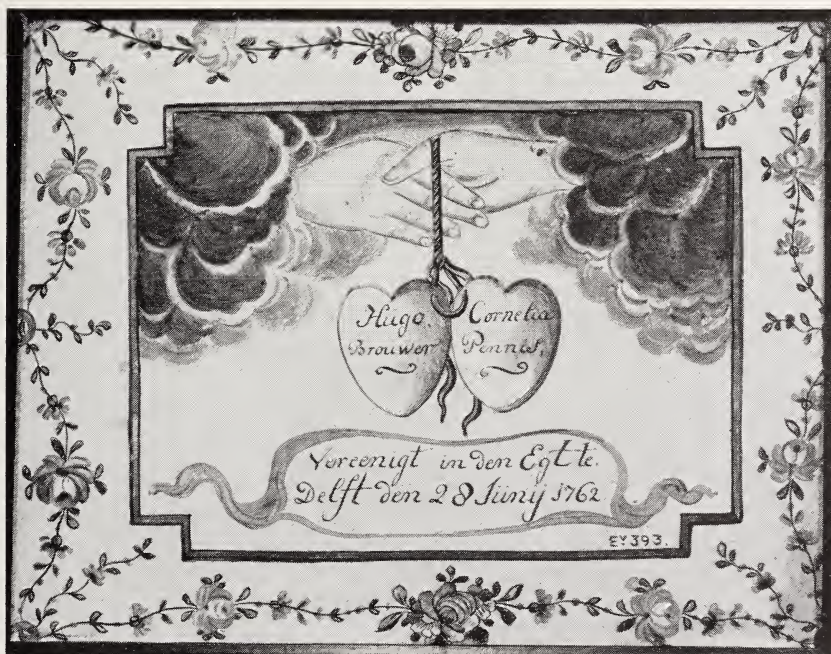 Hugo.
Brouwer
Cornelia
Pennis.
Vereenigt in den Egt te.
Delft den 28 Junij 1762
EY393.